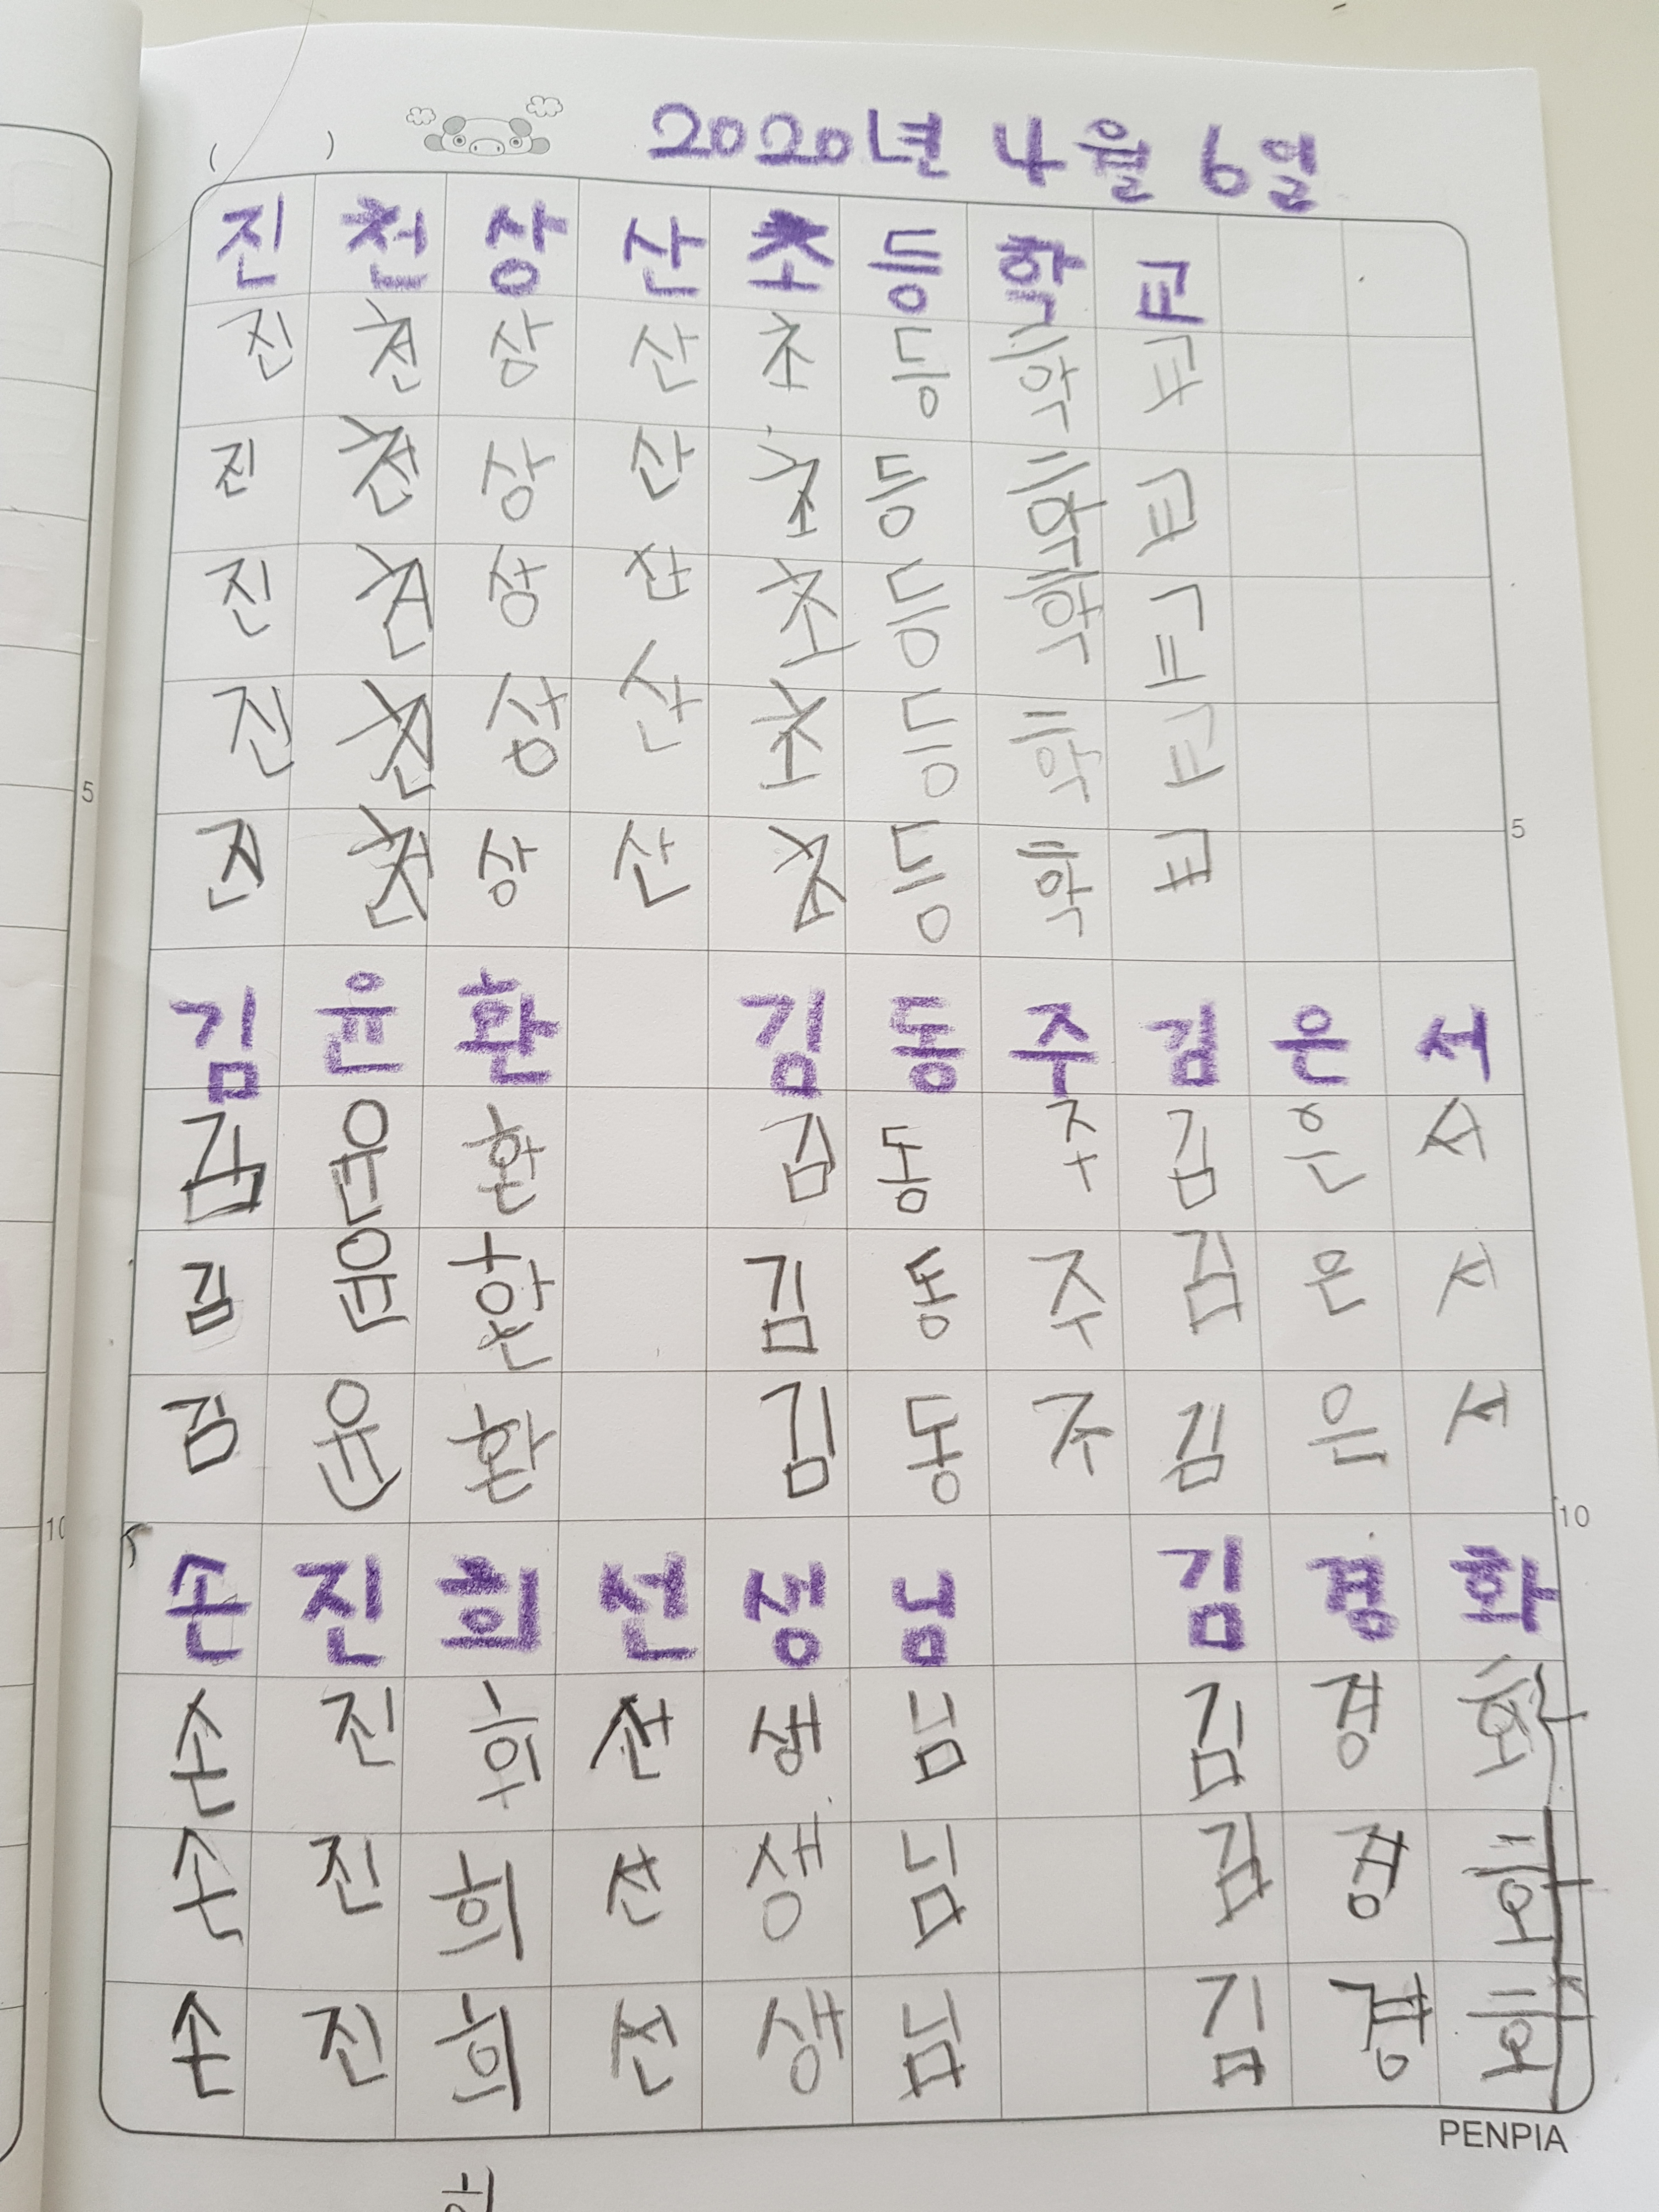 ( ) 2020년 4월 6일
진 천 상 산 초 등 학 교
진 천 상 산 초 등 학 교
진 천 상 산 초 등 학 교
진 천 상 산 초 등 학 교
진 천 상 산 초 등 학 교
5 진 천 상 산 초 등 학 교 5
김 윤 환 김 동 주 김 은 서
김 윤 환 김 동 주 김 은 서
김 윤 환 김 동 주 김 은 서
김 윤 환 김 동 주 김 은 서
10 10
손 진 희 선 생 님 김 경 화
손 진 희 선 생 님 김 경 화
손 진 희 선 생 님 김 경 화
손 진 희 선 생 님 김 경 화
PENPIA